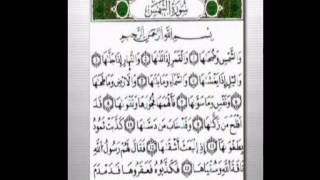 سورة الشمس
بسم الله الرحمن الرحيم
والشمس وضحىها ١ والقمر إذا تلىها ٢ والنهار إذا جلىها ٣
واليل إذا يغشىها ٤ والسماء وما بنىها ٥ والأرض وما طحىها
٦ ونفس وما سوىها ٧ فألهمها فجورها وتقوىها ٨ قد
أفلح من زكىها ٩ وقد خاب من دسىها ١٠ كذبت ثمود
بطغوىها ١١ إذ انبعث أشقىها ١٢ فقال لهم رسول الله
ناقة الله وسقيىها ١٣ فكذبوه فعقروها فدمدم